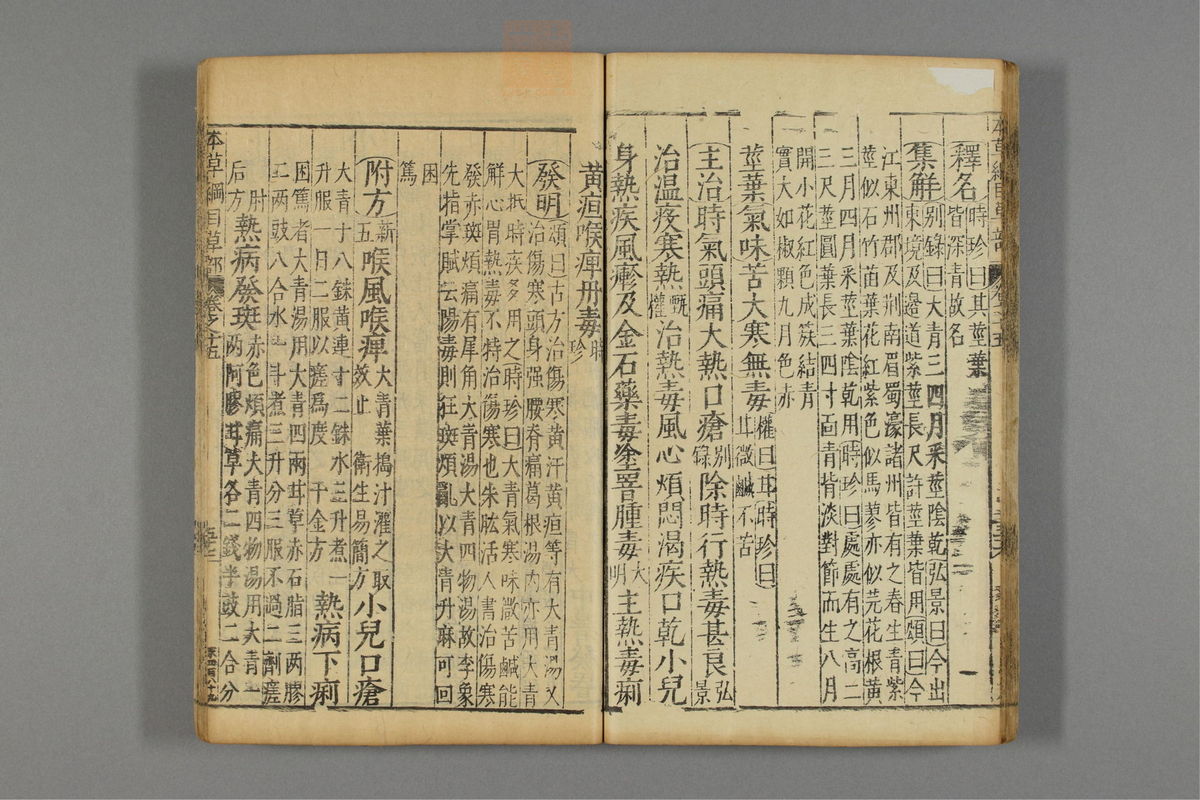 釋名時珍曰其莖葉
皆深青故名
集解別錄曰大青三四月采莖陰乾弘景曰今出
東境及邊道紫莖長尺許莖葉皆用頌曰今
江東州郡及荆南眉蜀濠諸州皆有之春生青紫
莖似石竹苗葉花紅紫色似馬蓼亦似芫花根黃
三月四月采莖葉陰乾用時珍曰處處有之高二
三尺莖圓葉長三四寸面青背淡對節而生八月
開小花紅色成簇結青
實大如椒顆九月色赤
莖葉氣味苦大寒無毒權曰甘時珍曰
甘微鹹不苦
主治時氣頭痛大熱口瘡别錄除時行熱毒甚良弘景
治溫疫寒熱甄權治熱毒風心煩悶渴疾口乾小兒
身熱疾風癮及金石藥毒塗罯腫毒大明主熱毒痢
黃疸喉痺丹毒時珍
發明頌曰古方治傷寒黃汗黃疸等有大青湯又
治傷寒頭身强腰脊痛葛根湯內亦用大青
大抵時疾多用之時珍曰大青氣寒味微苦鹹能
解心胃熱毒不特治傷寒也朱肱活人書治傷寒
發赤斑煩痛有犀角大青湯大青四物湯故李象
先指掌賦云陽毒則狂斑煩亂以大青升麻可回
困
篤
附方新五喉風喉痺大青葉搗汁灌之取效止衛生易簡方小兒口瘡
大青十八銖黃連十二銖水三升煮一
升服一日二服以瘥爲度千金方熱病下痢
困篤者大青湯用大青四兩甘草赤石脂三两膠
二两豉八合水一斗煮三升分三服不過二劑瘥
肘后方熱病發斑赤色煩痛大青四物湯用大青一
两阿膠甘草各二錢半豉二合分
本草綱目草部 卷之十五